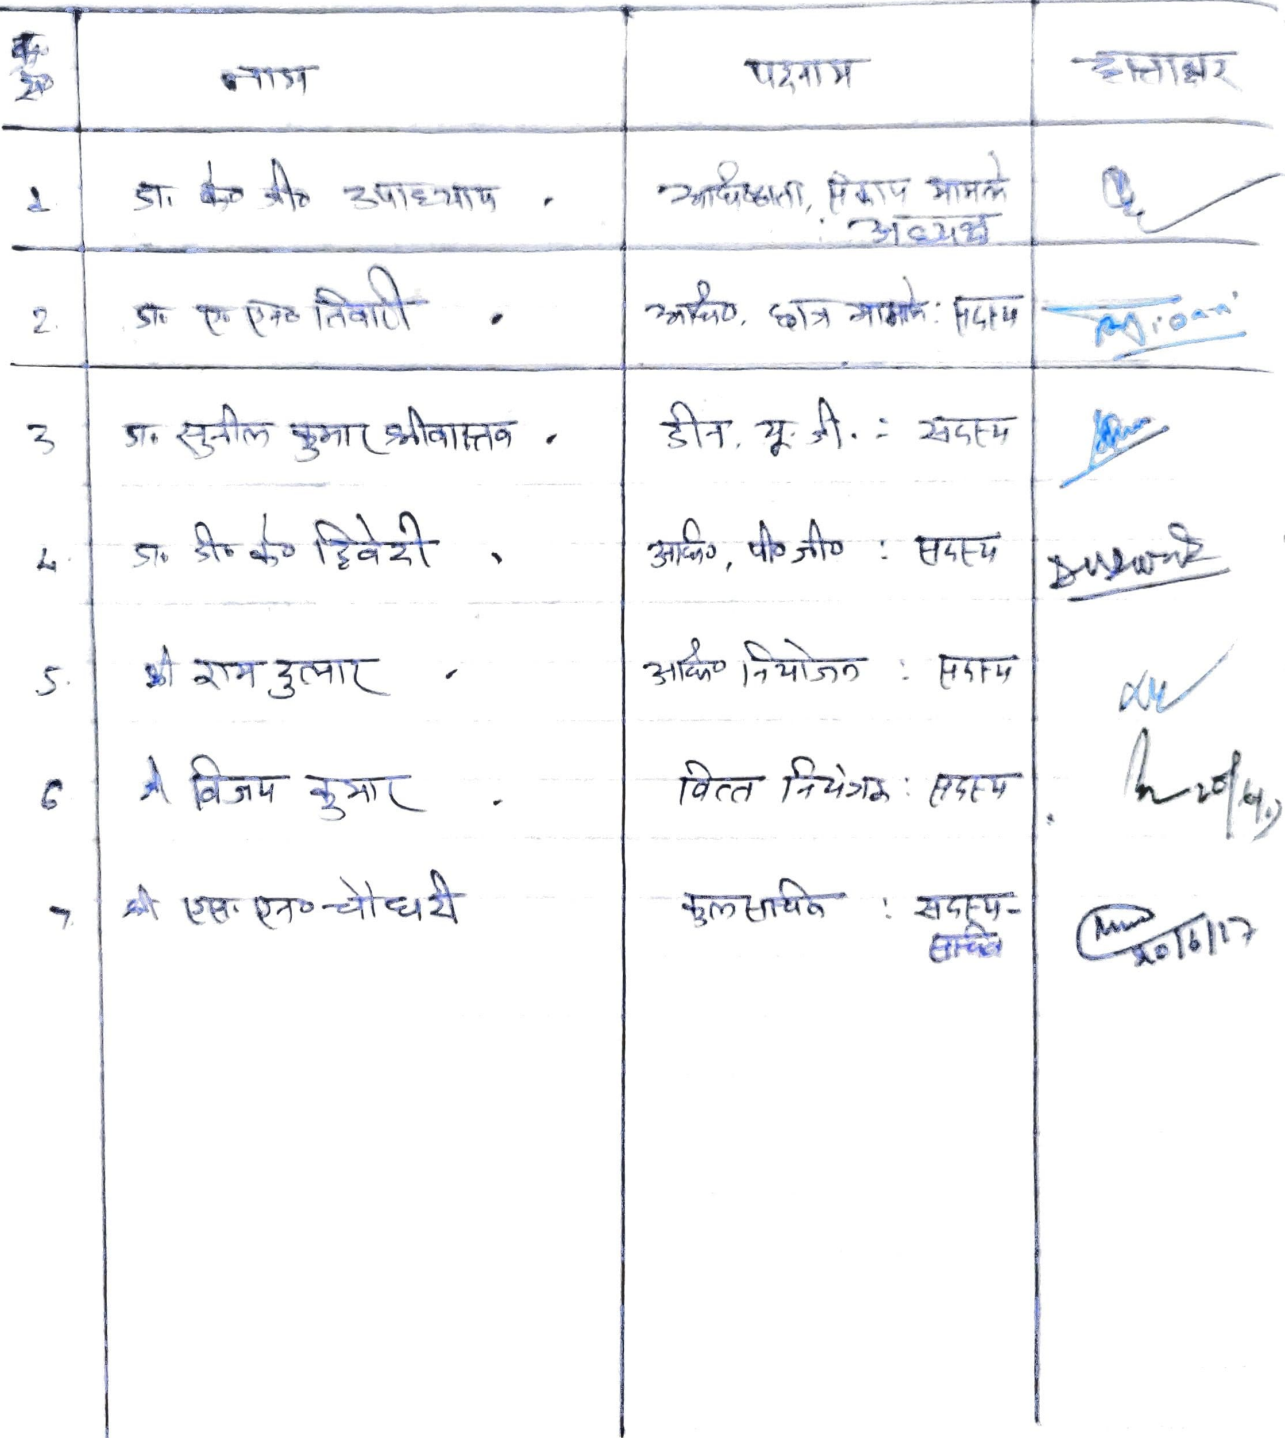 क्र० सं० नाम पदनाम हस्ताक्षर
1. डा. के० जी० उपाध्याय . अधिष्ठाता, संकाय मामले
: अध्यक्ष
2. डा० ए० एन० तिवारी . अधि०, छात्र मामले : सदस्य
3 डा. सुनील कुमार श्रीवास्तव . डीन. यू. जी. : सदस्य
4. डा० डी० के० द्विवेदी . अधि०, पी० जी० : सदस्य
5. श्री राम दुलार . अधि० नियोजन : सदस्य
6 श्री विजय कुमार . वित्त नियंत्रक : सदस्य
7. श्री एस. एन० चौधरी कुलसचिव : सदस्य-
सचिव
20/6/17